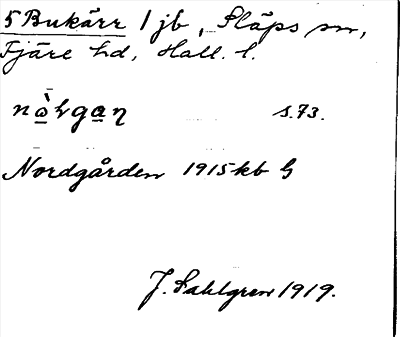 5 Bukärr 1 jb, Släps sn,
Fjäre hd, Hall. l.
s. 73.
Nordgården 1915 kb G
J. Sahlgren 1919.